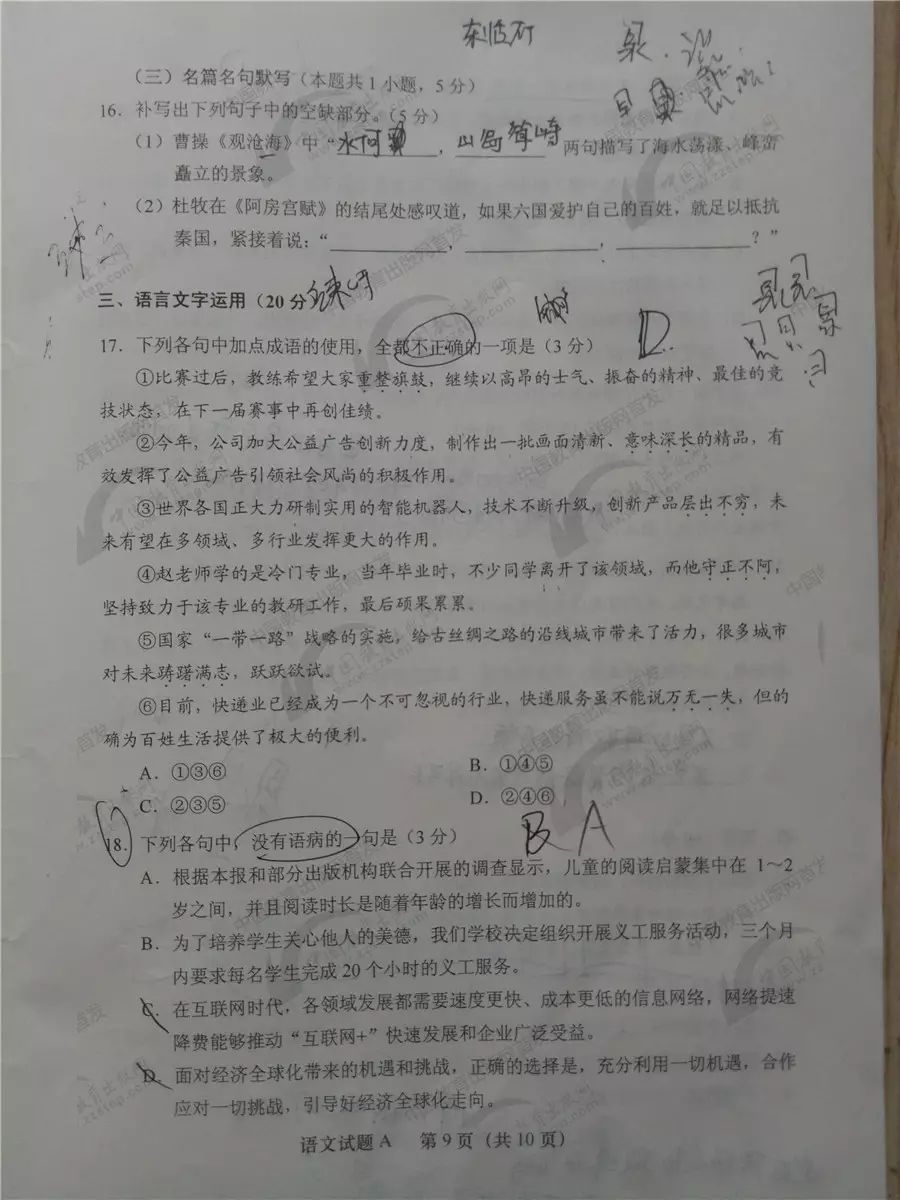 东临石
（三）名篇名句默写（本题共1小题，5分）
16. 补写出下列句子中的空缺部分。（5分）
（1）曹操《观沧海》中“水何，山岛竦峙 两句描写了海水荡漾、峰峦
矗立的景象。
（2）杜牧在《阿房宫赋》的结尾处感叹道，如果六国爱护自己的百姓，就足以抵抗
秦国，紧接着说：“____________，____________，____________？”
三、语言文字运用（20分
17. 下列各句中加点成语的使用，全都不正确的一项是（3分）
D
①比赛过后，教练希望大家重整旗鼓，继续以高昂的士气、振奋的精神、最佳的竞
技状态，在下一届赛事中再创佳绩。
②今年，公司加大公益广告创新力度，制作出一批画面清新、意味深长的精品，有
效发挥了公益广告引领社会风尚的积极作用。
③世界各国正大力研制实用的智能机器人，技术不断升级，创新产品层出不穷，未
来有望在多领域、多行业发挥更大的作用。
④赵老师学的是冷门专业，当年毕业时，不少同学离开了该领域，而他守正不阿，
坚持致力于该专业的教研工作，最后硕果累累。
⑤国家“一带一路”战略的实施，给古丝绸之路的沿线城市带来了活力，很多城市
对未来踌躇满志，跃跃欲试。
⑥目前，快递业已经成为一个不可忽视的行业，快递服务虽不能说万无一失，但的
确为百姓生活提供了极大的便利。
A. ①③⑥ B. ①④⑤
C. ②③⑤ D. ②④⑥
18. 下列各句中，没有语病的一句是（3分）
A
A. 根据本报和部分出版机构联合开展的调查显示，儿童的阅读启蒙集中在 1～2
岁之间，并且阅读时长是随着年龄的增长而增加的。
B. 为了培养学生关心他人的美德，我们学校决定组织开展义工服务活动，三个月
内要求每名学生完成20个小时的义工服务。
C. 在互联网时代，各领域发展都需要速度更快、成本更低的信息网络，网络提速
降费能够推动“互联网+”快速发展和企业广泛受益。
D. 面对经济全球化带来的机遇和挑战，正确的选择是，充分利用一切机遇，合作
应对一切挑战，引导好经济全球化走向。
语文试题A 第9页（共10页）